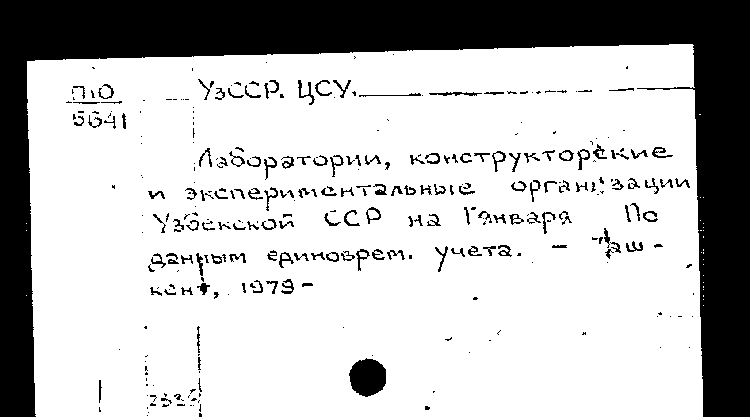 П10 УзССР. ЦСУ.
5641
Лаборатории, конструкторские
и экспериментальные организации
Узбекской ССР на 1 января По
данным единоврем. учета. - Таш-
кент, 1979-